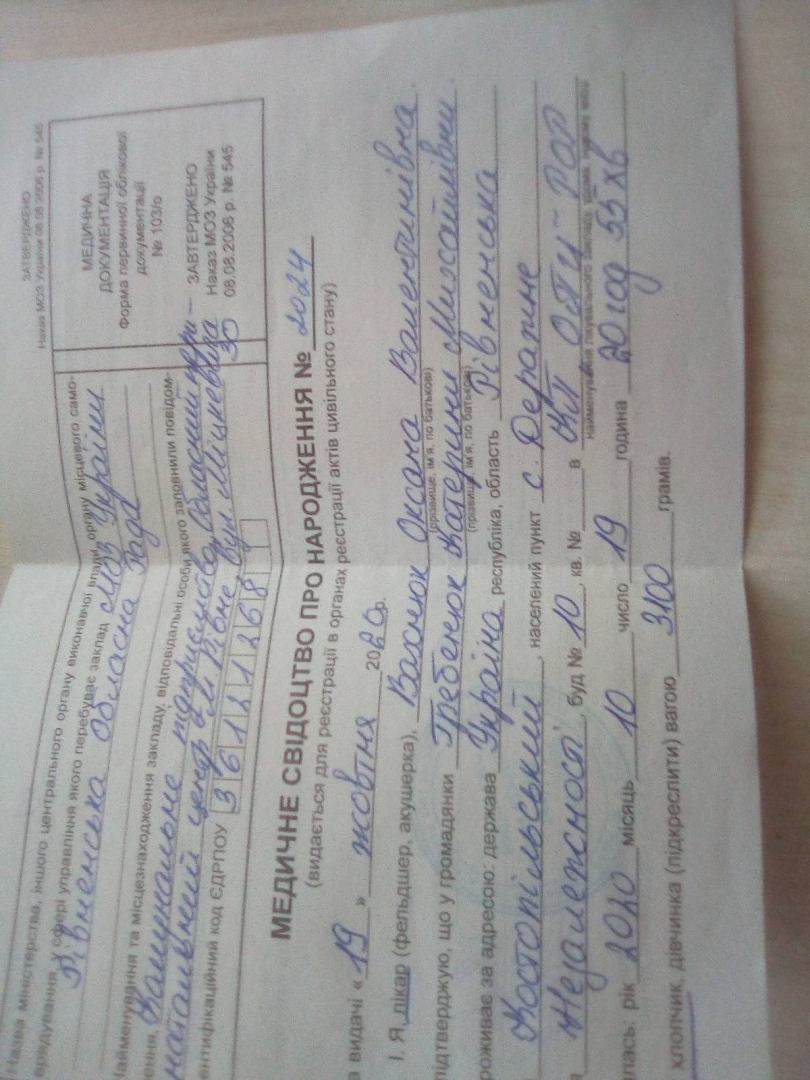 ЗАТВЕРДЖЕНО
Наказ МОЗ України 08.08.2006 р. № 545
Назва міністерства, іншого центрального органу виконавчої влади, органу місцевого само-
врядування, у сфері управління якого перебуває заклад МОЗ України
Рівненська обласна рада
Найменування та місцезнаходження закладу, відповідальні особи якого заповнили повідом-
ення, Комунальне підприємство „Обласний пери-
натальний центр" м. Рівне, вул. Міцкевича 30
ентифікаційний код ЄДРПОУ 36121268
МЕДИЧНА
ДОКУМЕНТАЦІЯ
Форма первинної облікової
документації
№ 103/о
ЗАВТЕРДЖЕНО
Наказ МОЗ України
08.08.2006 р. № 545
МЕДИЧНЕ СВІДОЦТВО ПРО НАРОДЖЕННЯ № 2024
(видається для реєстрації в органах реєстрації актів цивільного стану)
а видачі « 19 » жовтня 2020р.
І. Я, лікар (фельдшер, акушерка), Вахнюк Оксана Валентинівна
(прізвище, ім'я, по батькові)
підтверджую, що у громадянки Гребенюк Катерини Михайлівни
(прізвище, ім'я, по батькові)
роживає за адресою: держава Україна республіка, область Рівненська
Костопільський, населений пункт с. Деражне
я Незалежності, буд № 10, кв. № в КП ОПЦ-РОР
найменування лікувального закладу, удома, іншому місці
лась. рік 2020 місяць 10 число 19 година 20 год 55 хв
хлопчик, дівчинка (підкреслити) вагою 3100 грамів.